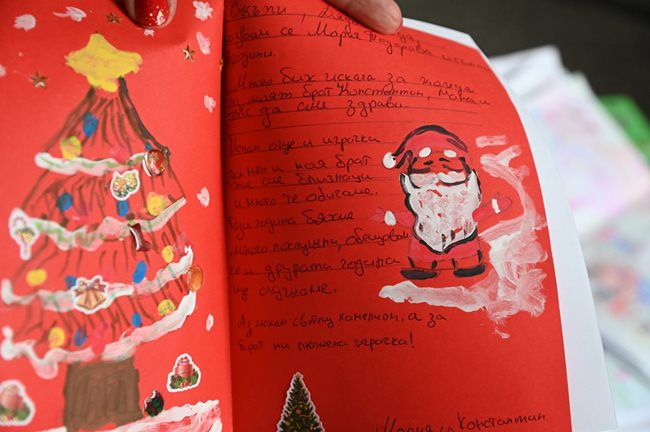 Скъпи, Дядо
казвам се Мария Тодорова и съм
годишна.
Много бих искала за коледа
аз, моят брат Константин, мама и
тате да сме здрави.
Искам още и играчки
за мен и моя брат
ние сме близнаци
и много те обичаме.
Тази година бяхме
много послушни, обещавам
че и другата година
ще слушаме.
Аз искам светещ хамелеон, а за
брат ми плюшена играчка!
Мария и Константин